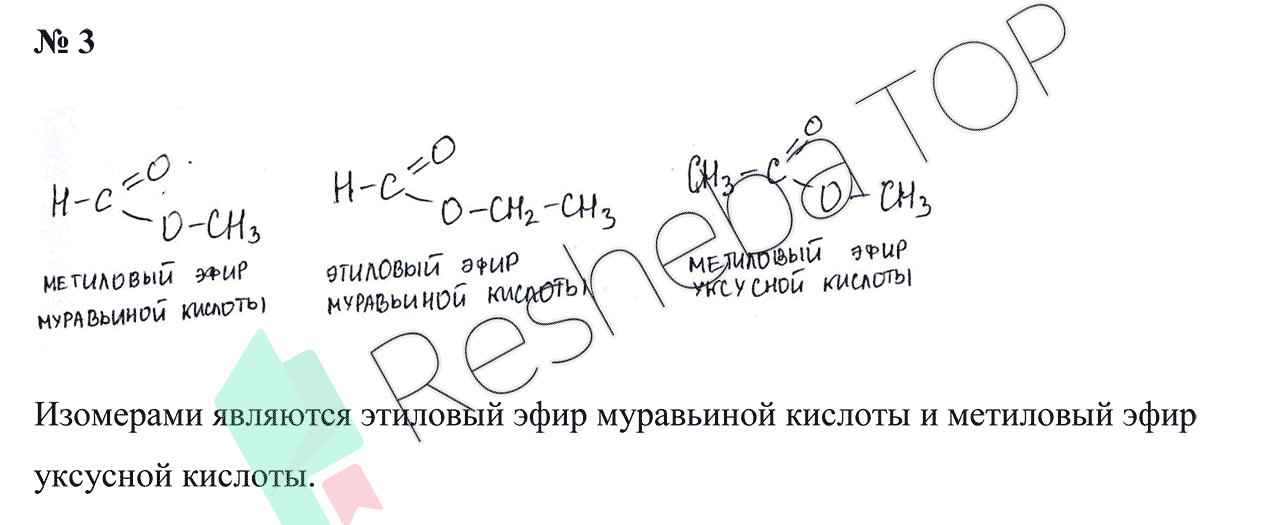 № 3
H-C=O
O-CH3
H-C=O
O-CH2-CH3
CH3-C=O
O-CH3
МЕТИЛОВЫЙ ЭФИР
МУРАВЬИНОЙ КИСЛОТЫ
ЭТИЛОВЫЙ ЭФИР
МУРАВЬИНОЙ КИСЛОТЫ
МЕТИЛОВЫЙ ЭФИР
УКСУСНОЙ КИСЛОТЫ
Resheba TOP
Изомерами являются этиловый эфир муравьиной кислоты и метиловый эфир
уксусной кислоты.